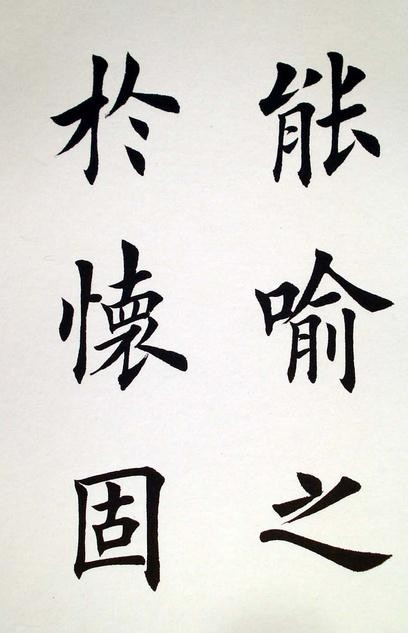 能喻之
於懐固